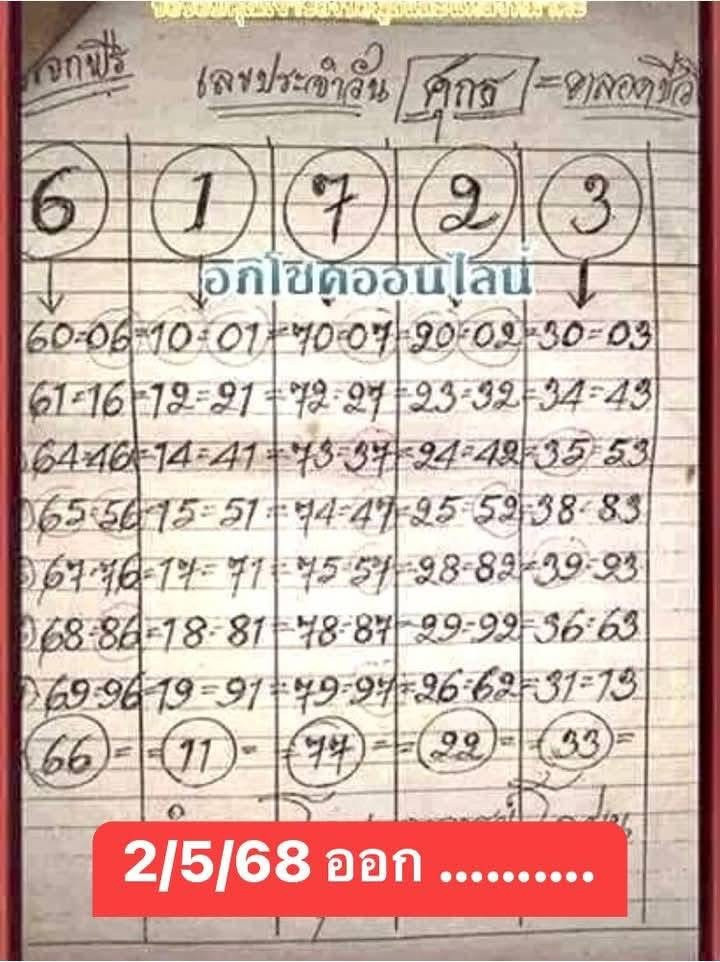 แจกฟรี เลขประจำวัน ศุกร์ = ตลอดชีวิ
6 1 7 2 3
อภิโชคออนไลน์
60=06=10=01=70=07=20=02=30=03
61=16=12=21=72=27=23=32=34=43
64=46=14=41=73=37=24=42=35=53
65=56=15=51=74=47=25=52=38=83
67=76=17=71=75=57=28=82=39=93
68=86=18=81=78=87=29=92=36=63
69=96=19=91=79=97=26=62=31=13
66= =11= =77= =22= =33=
2/5/68 ออก ..........